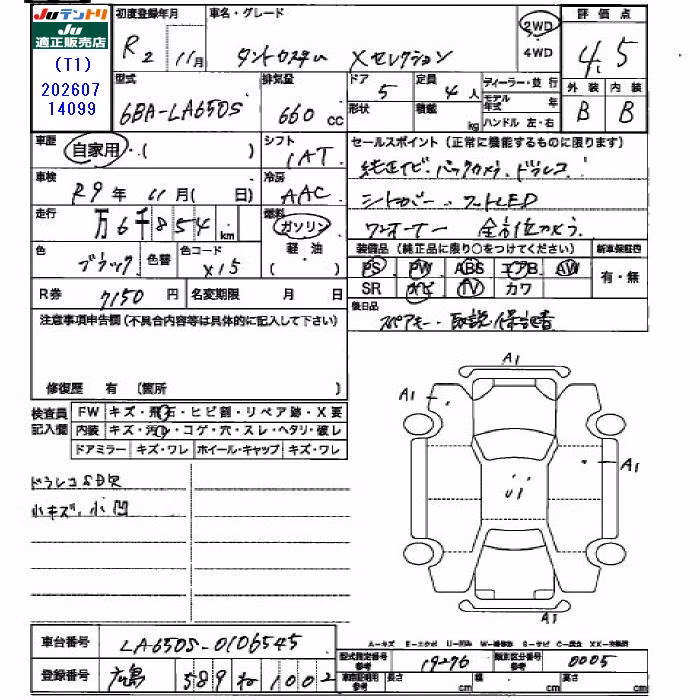 Juテントリ
Ju
適正販売店
(T1)
202607
14099
初度登録年月
R2 11月
車名・グレード
タントカスタム Xセレクション
2WD
4WD
評価点
4.5
型式
6BA-LA650S
排気量
660 cc
ドア
5
形状
定員
4人
積載
kg
ディーラー・並行
モデル年式 年
ハンドル 左・右
外装 内装
B B
車歴
自家用・( )
シフト
IAT
セールスポイント(正常に機能するものに限ります)
純正ナビ・バックカメラ、ドラレコ、
シートカバー・フットLED
ワンオーナー 全方位カメラ
車検
R9年 11月( 日)
冷房
AAC
走行
万6千854km
燃料
ガソリン
軽・油
( )
色
ブラック
色替
色コード
X15
装備品(純正品に限り○をつけてください)
新車保証書
PS PW ABS エアB AW
SR ナビ TV カワ
有・無
R券 7150円
名変期限 月 日
後日品
スペアキー・取説・保証書
注意事項申告欄(不具合内容等は具体的に記入して下さい)
修復歴 有 (箇所 )
検査員
記入欄
FW キズ・飛石・ヒビ割・リペア跡・X要
内装 キズ・汚レ・コゲ・穴・スレ・ヘタリ・破レ
ドアミラー キズ・ワレ ホイール・キャップ キズ・ワレ
ドラレコSD欠
小キズ、小凹
A1
A1
A1
U1
A1
A-キズ E-エクボ U-凹み W-補修跡 S-サビ C-腐食 XX-交換済
車台番号
LA650S-0106545
登録番号
広島 589 ね 1002
型式指定番号
参考
19276
類別区分番号
参考
0005
車庫証明用
参考
長さ cm
幅 cm
高さ cm